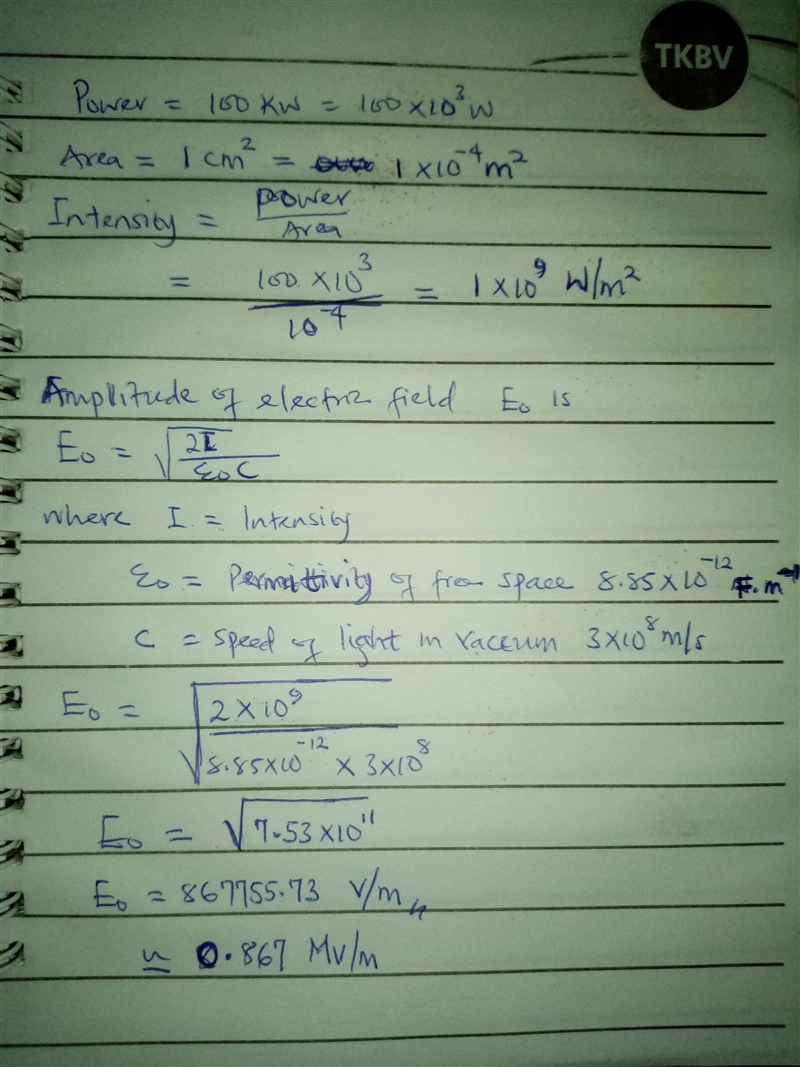 TKBV
Power = 100 KW = 100 × 10³ W
Area = 1 cm² = 1 × 10⁻⁴ m²
Intensity = Power / Area
= 100 × 10³ / 10⁻⁴ = 1 × 10⁹ W/m²
Amplitude of electric field E₀ is
E₀ = √(2I / ε₀C)
where I = Intensity
ε₀ = Permittivity of free space 8.85 × 10⁻¹² F.m⁻¹
C = speed of light in vaccum 3 × 10⁸ m/s
E₀ = √(2 × 10⁹ / 8.85 × 10⁻¹² × 3 × 10⁸)
E₀ = √(7.53 × 10¹¹)
E₀ = 867755.73 V/m
≃ 0.867 MV/m